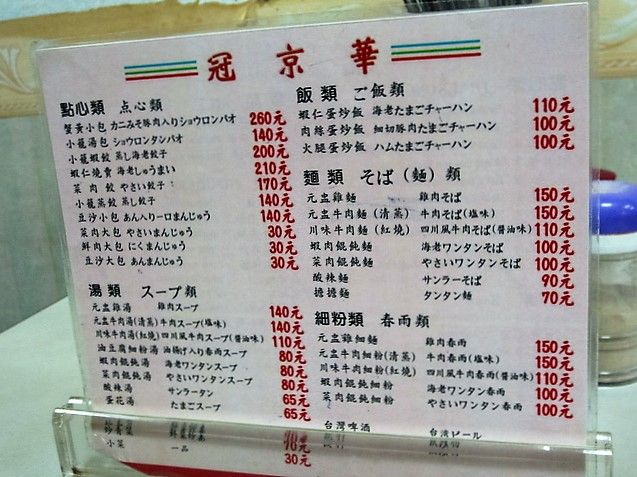 冠京華
點心類 点心類
蟹黃小包 カニみそ豚肉入りショウロンパオ 260元
小籠湯包 ショウロンタンパオ 140元
小籠蝦餃 蒸し海老餃子 200元
蝦仁燒賣 海老しゅうまい 210元
菜肉餃 やさい餃子 170元
小籠蒸餃 蒸し餃子 140元
豆沙小包 あん入り一口まんじゅう 140元
菜肉大包 やさいまんじゅう 30元
鮮肉大包 にくまんじゅう 30元
豆沙大包 あんまんじゅう 30元
湯類 スープ類
元盅雞湯 雞肉スープ 140元
元盅牛肉湯(清蒸) 牛肉スープ(塩味) 140元
川味牛肉湯(紅燒) 四川風牛肉スープ(醬油味) 110元
油豆腐細粉湯 油揚げ入り春雨スープ 80元
蝦肉餛飩湯 海老ワンタンスープ 80元
菜肉餛飩湯 やさいワンタンスープ 80元
酸辣湯 サンラータン 65元
蛋花湯 たまごスープ 65元
小菜 一品 30元
飯類 ご飯類
蝦仁蛋炒飯 海老たまごチャーハン 110元
肉絲蛋炒飯 細切豚肉たまごチャーハン 100元
火腿蛋炒飯 ハムたまごチャーハン 100元
麵類 そば(麵)類
元盅雞麵 雞肉そば 150元
元盅牛肉麵(清蒸) 牛肉そば(塩味) 150元
川味牛肉麵(紅燒) 四川風牛肉そば(醬油味) 110元
蝦肉餛飩麵 海老ワンタンそば 100元
菜肉餛飩麵 やさいワンタンそば 100元
酸辣麵 サンラーそば 90元
擔擔麵 タンタン麵 70元
細粉類 春雨類
元盅雞細麵 雞肉春雨 150元
元盅牛肉細粉(清蒸) 牛肉春雨(塩味) 150元
川味牛肉細粉(紅燒) 四川風牛肉春雨(醬油味) 110元
蝦肉餛飩細粉 海老ワンタン春雨 100元
菜肉餛飩細粉 やさいワンタン春雨 100元
台灣啤酒 台湾ビール